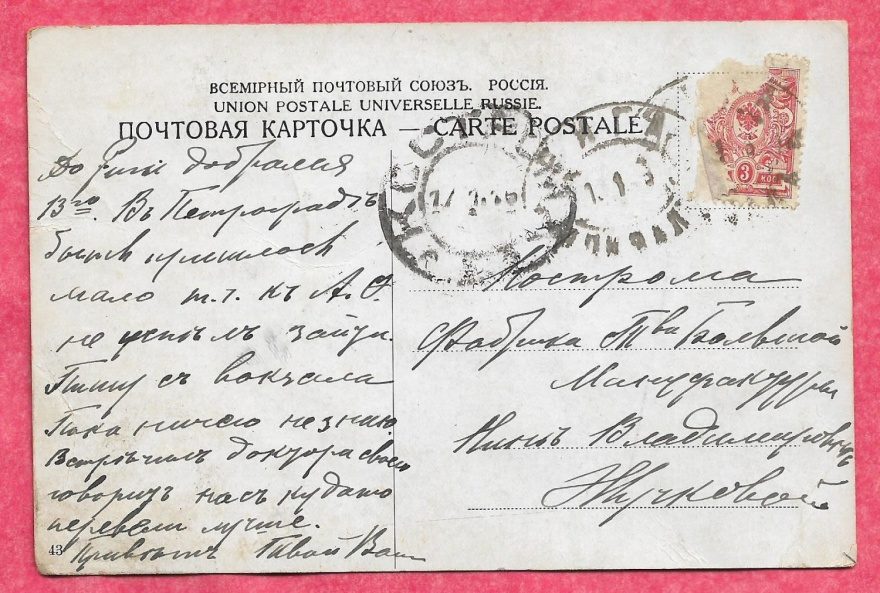 ВСЕМІРНЫЙ ПОЧТОВЫЙ СОЮЗЪ. РОССІЯ.
UNION POSTALE UNIVERSELLE RUSSIE.
ПОЧТОВАЯ КАРТОЧКА — CARTE POSTALE
До Риги добрался
13го. Въ Петроградѣ
быть пришлось
мало т.ч. къ А.
не успѣлъ зайти.
Пишу съ вокзала
Пока ничего не знаю.
Встрѣтилъ доктора своего
говоритъ насъ куда то
перевели лучше.
Привѣтъ Твой
43
Кострома
Фабрика Тва Большой
Мануфактуры
Нинѣ Владимировнѣ
Жучковой
3 КОП
КОСТРОМА